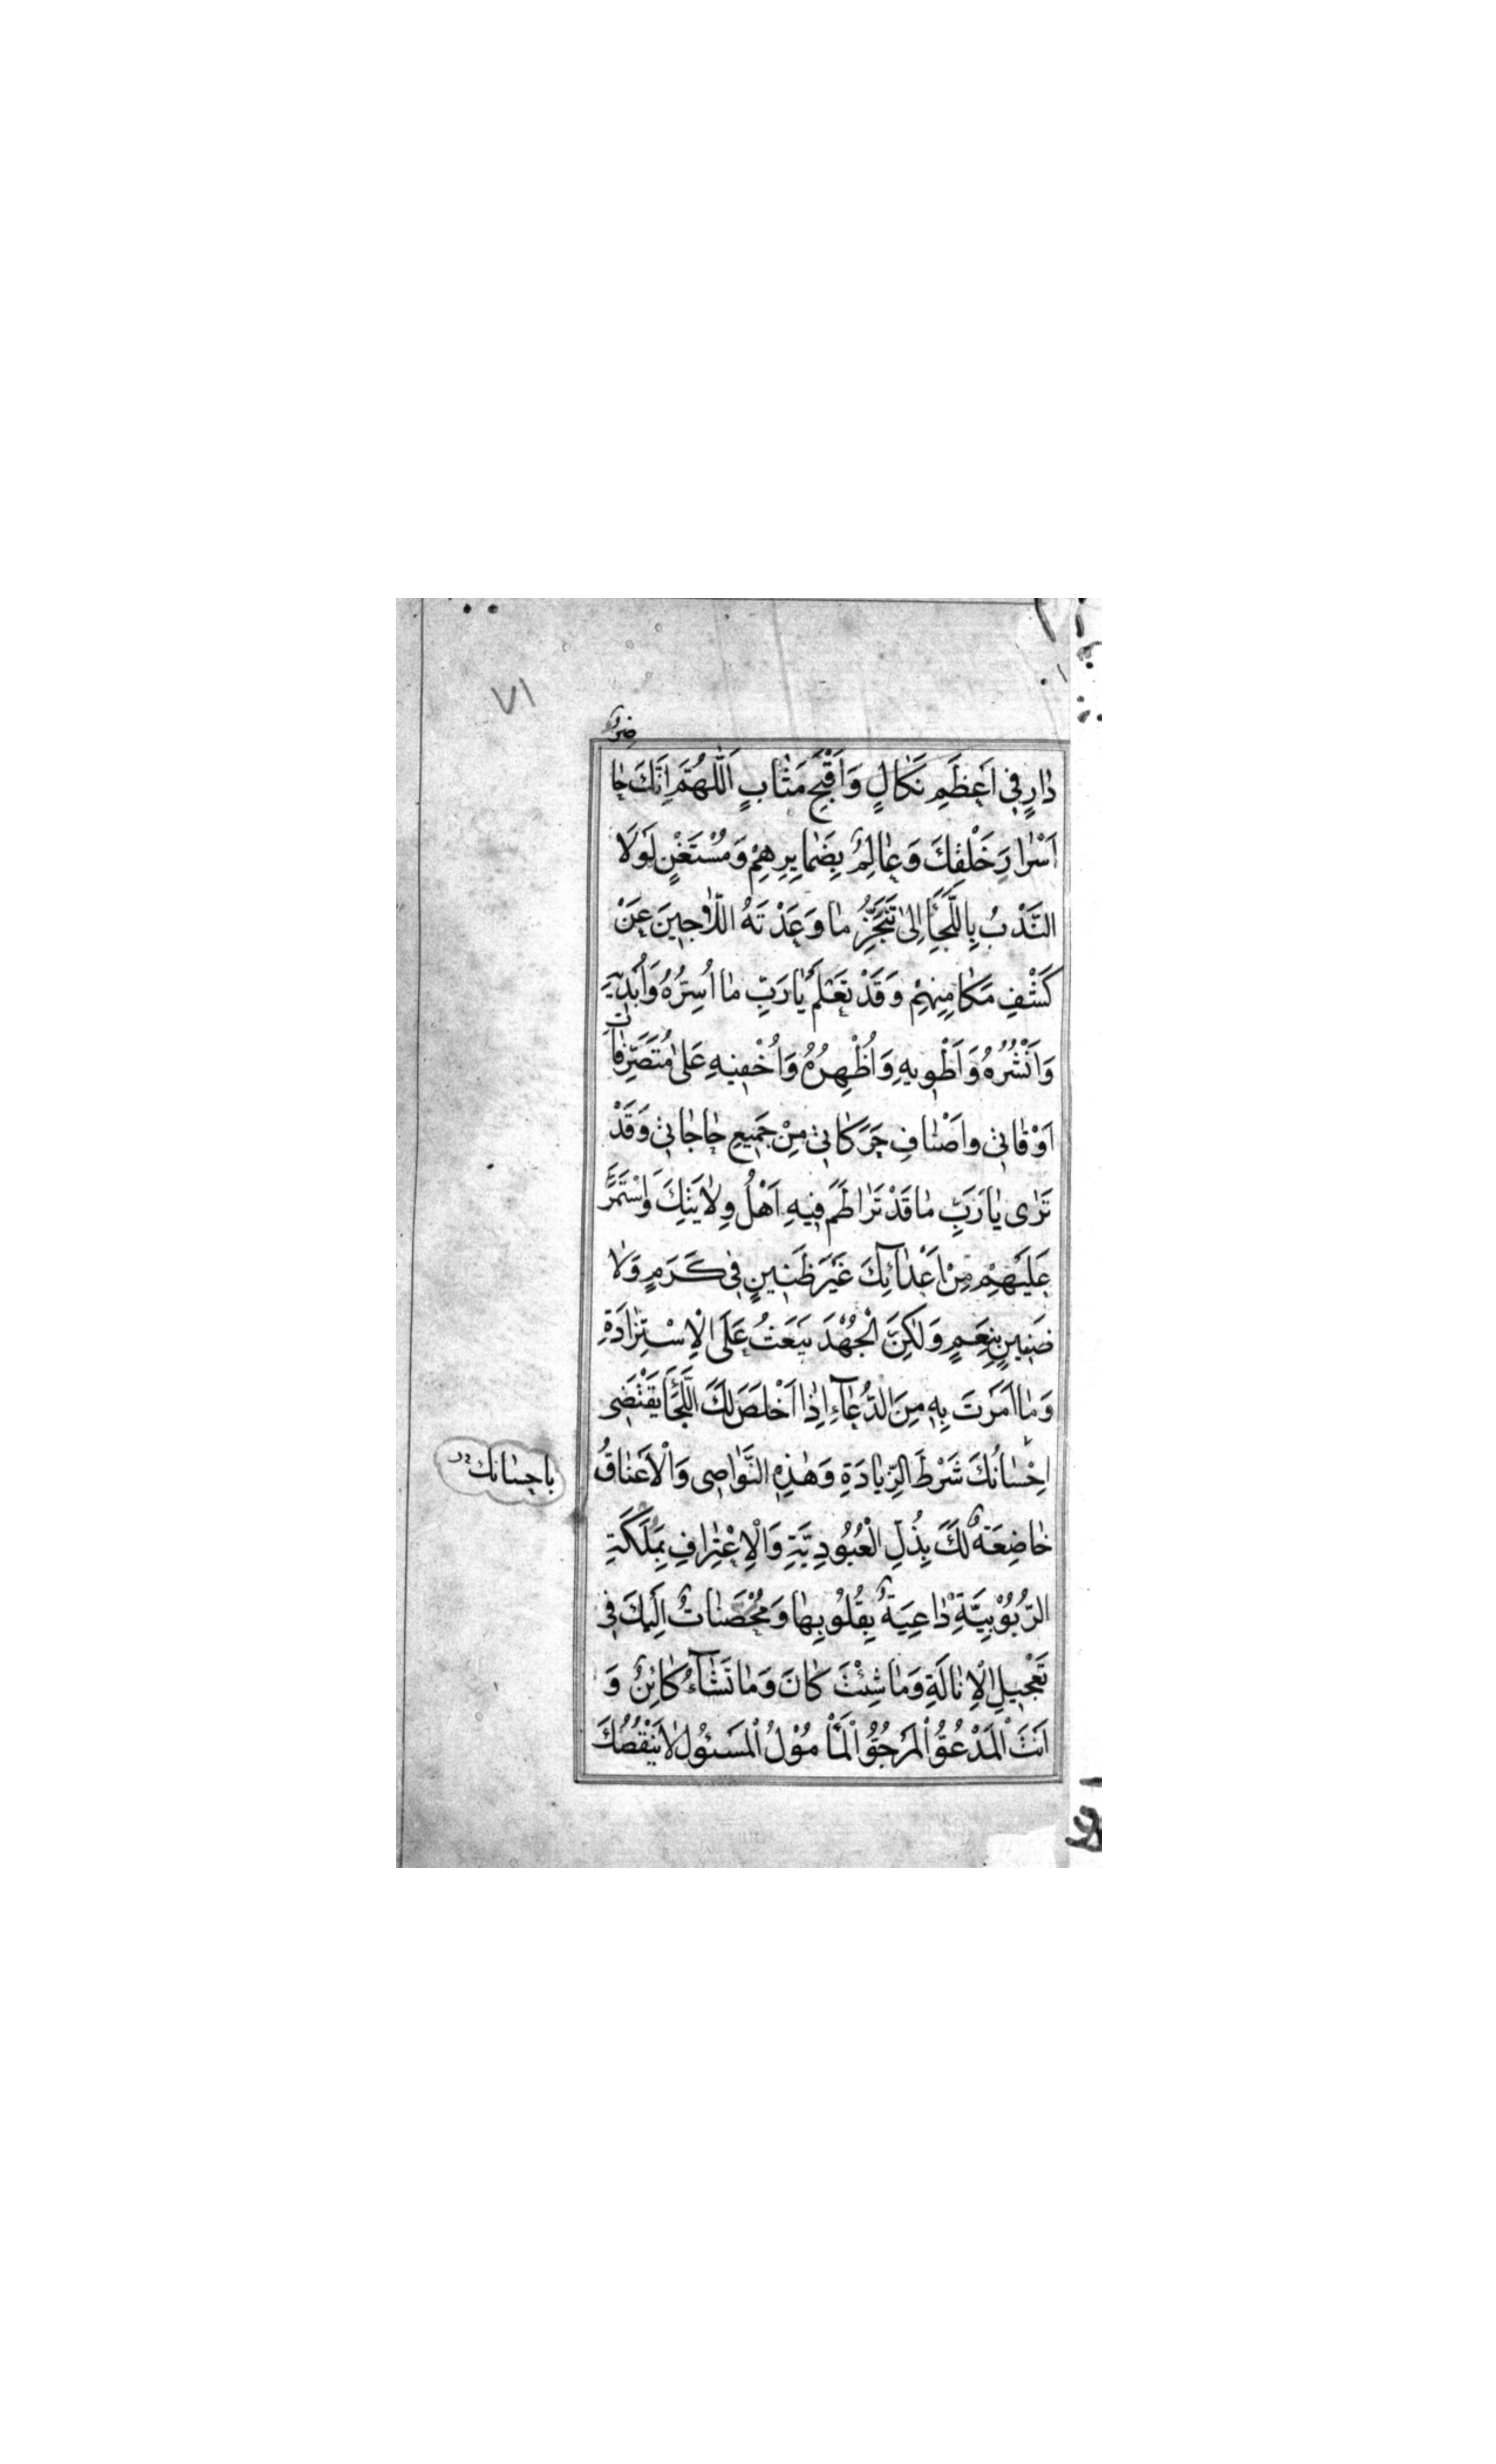 ٧١
دٰارٍ فِى اَعْظَمِ نَكٰالٍ وَاَقْبَحِ مَثٰابٍ اَللّٰهُمَّ اِنَّكَ حٰا
ضِرُ
اَسْرٰارِ خَلْقِكَ وَعٰالِمٌ بِضَمٰايِرِهِمْ وَمُسْتَغْنٍ لَوْلَا
النَّدْبُ بِاللَّجَأِ اِلىٰ تَنَجُّزِ مٰا وَعَدْتَهُ اللّٰاجِينَ عَنْ
كَشْفِ مَكٰامِنِهِمْ وَقَدْ تَعْلَمُ يٰا رَبِّ مٰا اُسِرُّهُ وَاُبْدِيهِ
وَاَنْشُرُهُ وَاَطْوِيهِ وَاُظْهِرُهُ وَاُخْفِيهِ عَلىٰ مُتَصَرِّفٰاتِ
اَوْقٰاتِى وَاَصْنٰافِ حَرَكٰاتِى مِنْ جَمِيعِ حٰاجٰاتِى وَقَدْ
تَرٰى يٰا رَبِّ مٰا قَدْ تَرٰاطَمَ فِيهِ اَهْلُ وِلٰايَتِكَ وَاسْتَمَرَّ
عَلَيْهِمْ مِنْ اَعْدٰآئِكَ غَيْرَ ظَنِينٍ فِى كَرَمٍ وَلٰا
ضَنِينٍ بِنِعَمٍ وَلٰكِنَّ الْجُهْدَ يَبْعَثُ عَلَى الْاِسْتِزٰادَةِ
وَمٰا اَمَرْتَ بِهِ مِنَ الدُّعٰآءِ اِذٰا اَخْلَصَ لَكَ اللَّجَأَ يَقْتَضِى
اِحْسٰانُكَ شَرْطَ الزِّيٰادَةِ وَهٰذِهِ النَّوٰاصِى وَالْاَعْنٰاقُ
باحسانك
خٰاضِعَةٌ لَكَ بِذُلِّ الْعُبُودِيَّةِ وَالْاِعْتِرٰافِ بِمَلَكَةِ
الرُّبُوْبِيَّةِ دٰاعِيَةٌ بِقُلُوبِهٰا وَمُحْصَنٰاتٌ اِلَيْكَ فِى
تَعْجِيلِ الْاِنٰالَةِ وَمٰا شِئْتَ كٰانَ وَمٰا تَشٰآءُ كٰائِنٌ وَ
اَنْتَ الْمَدْعُوُّ الْمَرْجُوُّ الْمَأْمُوْلُ الْمَسْئُولُ لٰا يَنْقُصُكَ